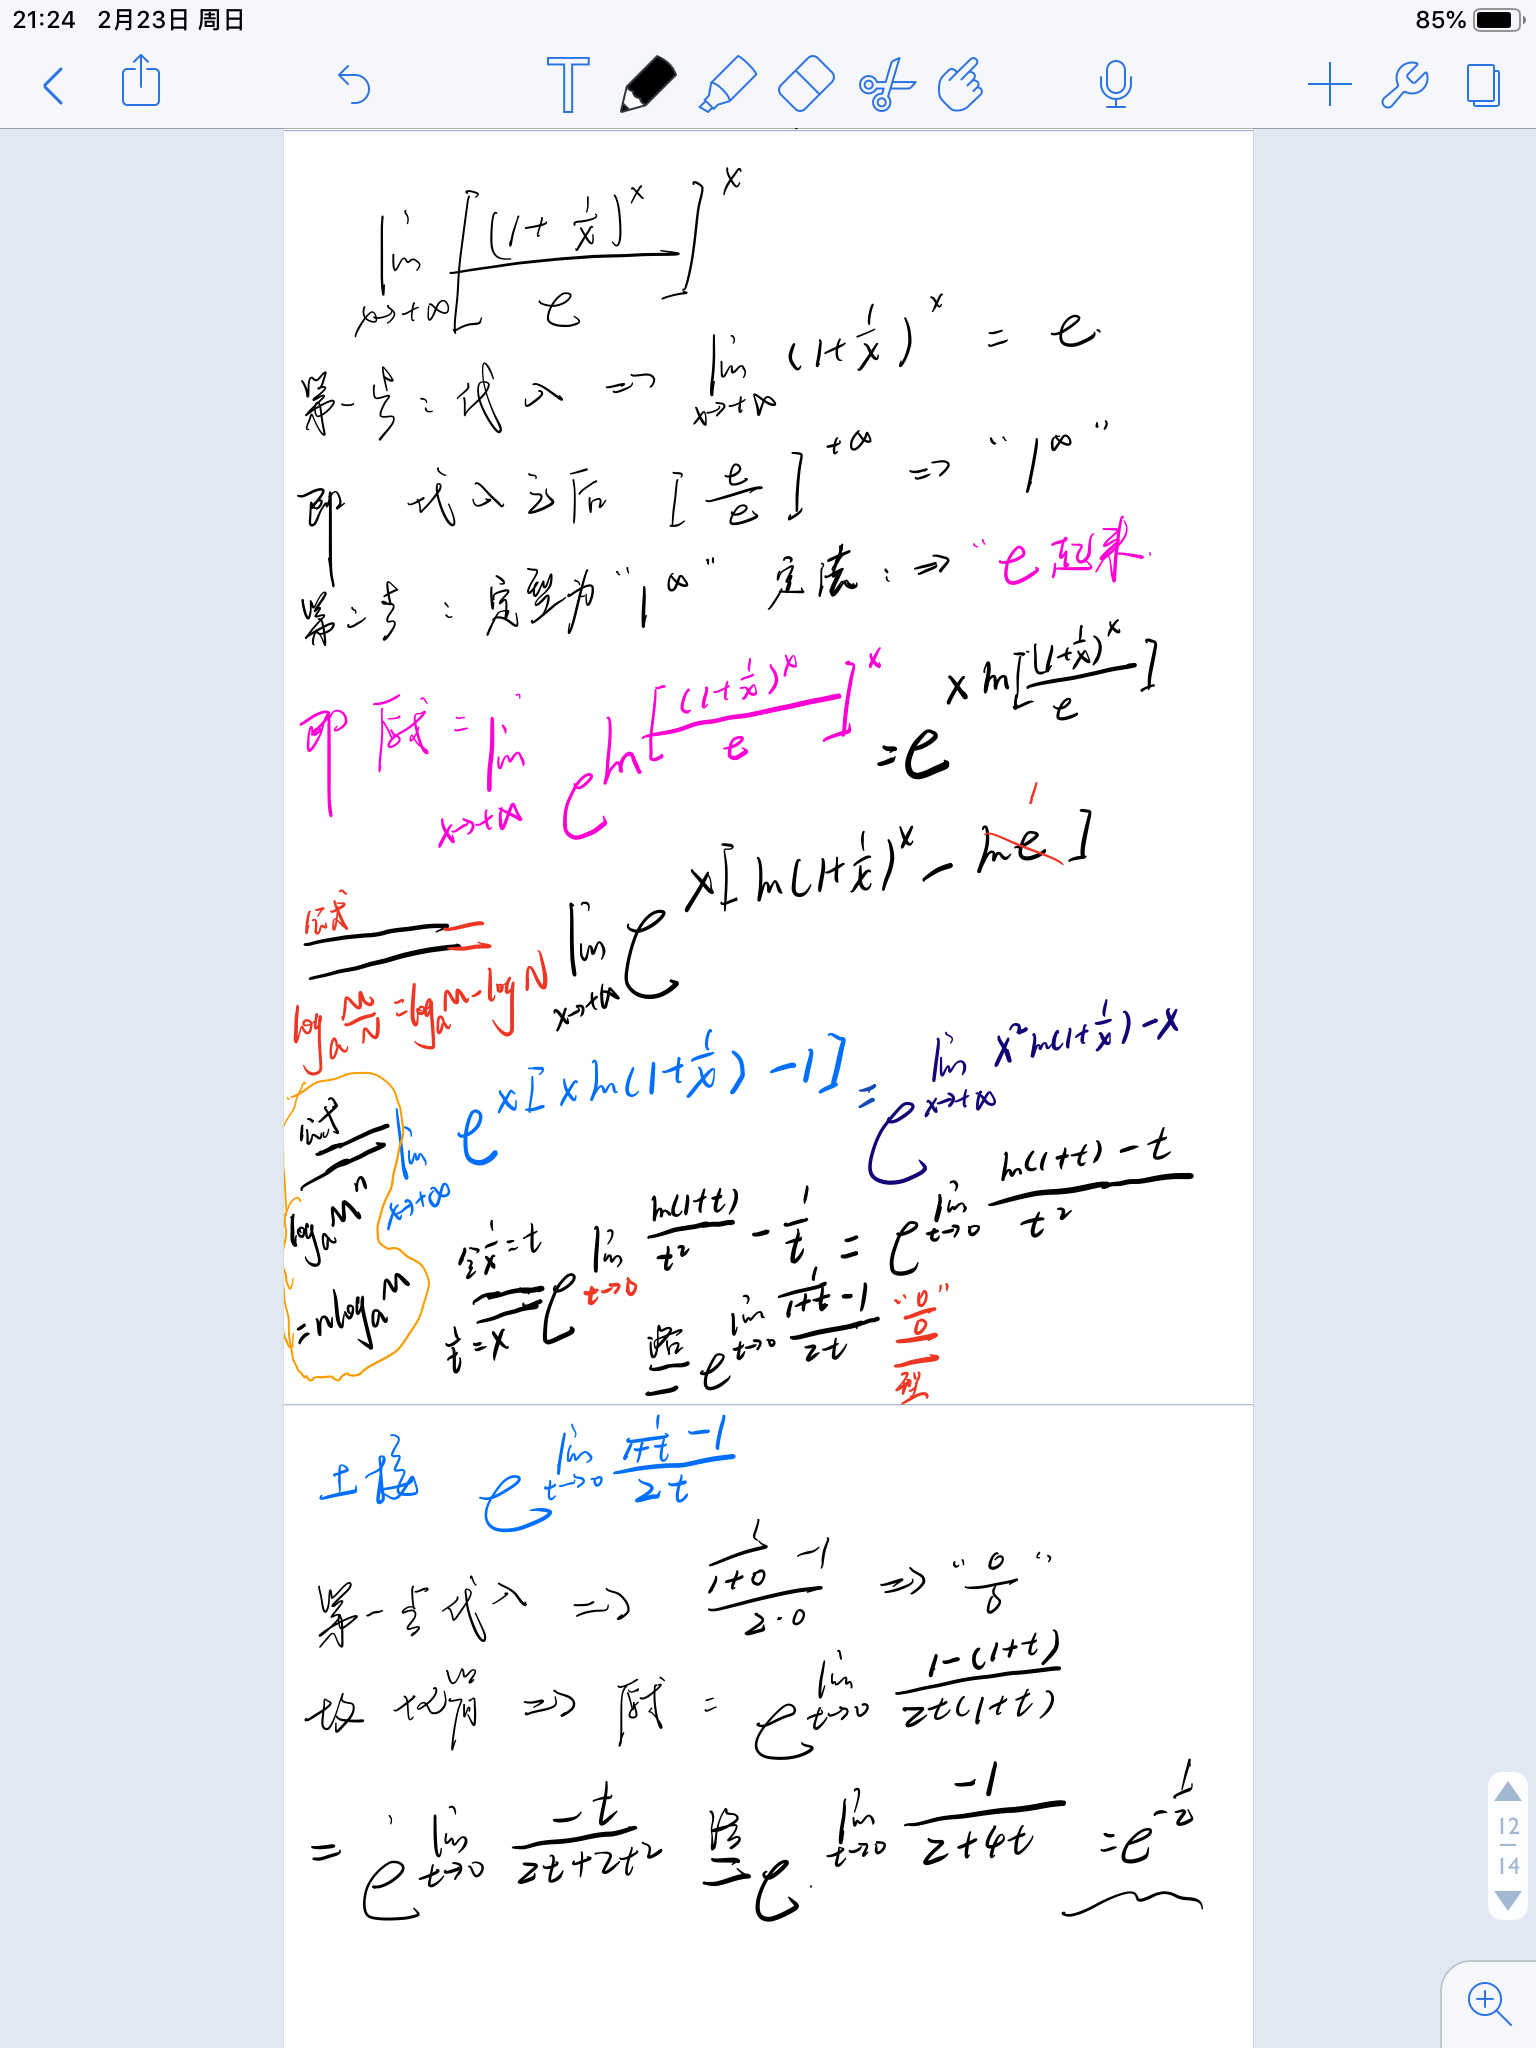 21:24 2月23日 周日 85%
lim x→+∞ [(1+1/x)^x / e]^x
第一步：代入 => lim x→+∞ (1+1/x)^x = e
即 代入之后 [e/e]^+∞ => “1^∞”
第二步：定型为“1^∞” 定法：=> “e起来
即 原式 = lim x→+∞ e^ln[(1+1/x)^x / e]^x = e^x ln[(1+1/x)^x / e]
公式 log_a M/N = log_a M - log N
lim x→+∞ e^x[ln(1+1/x)^x - ln e] 1
公式 log_a M^n = n log_a M
lim x→+∞ e^x[x ln(1+1/x) -1] = e^lim x→+∞ x²ln(1+1/x) - x
令1/x = t 1/t = x e^lim t→0 ln(1+t)/t² - 1/t = e^lim t→0 (ln(1+t) - t)/t²
洛 = e^lim t→0 (1/(1+t) - 1)/2t “0/0” 型
上接 e^lim t→0 (1/(1+t) - 1)/2t
第一步代入 => (1/(1+0) - 1)/(2·0) => “0/0”
故 => 原式 = e^lim t→0 (1-(1+t))/(2t(1+t))
= e^lim t→0 -t/(2t+2t²) 洛 = e^lim t→0 -1/(2+4t) = e^-1/2
12
14